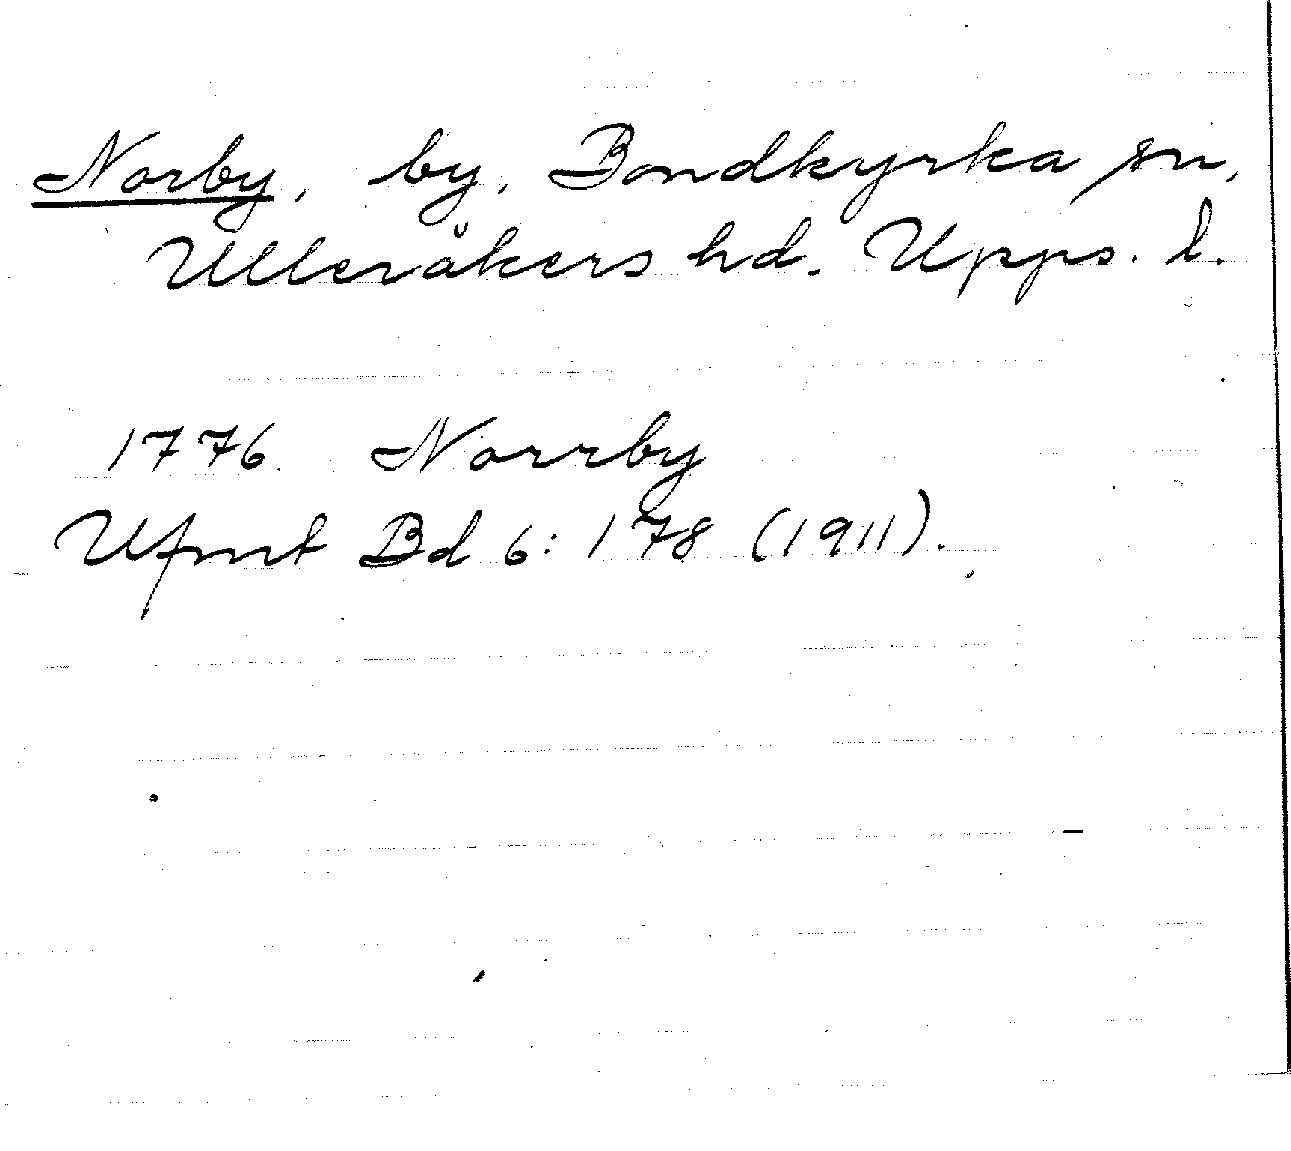 Norby, by, Bondkyrka sn,
Ulleråkers hd. Upps. l.
1776 Norrby
Ufmt Bd 6: 178 (1911).